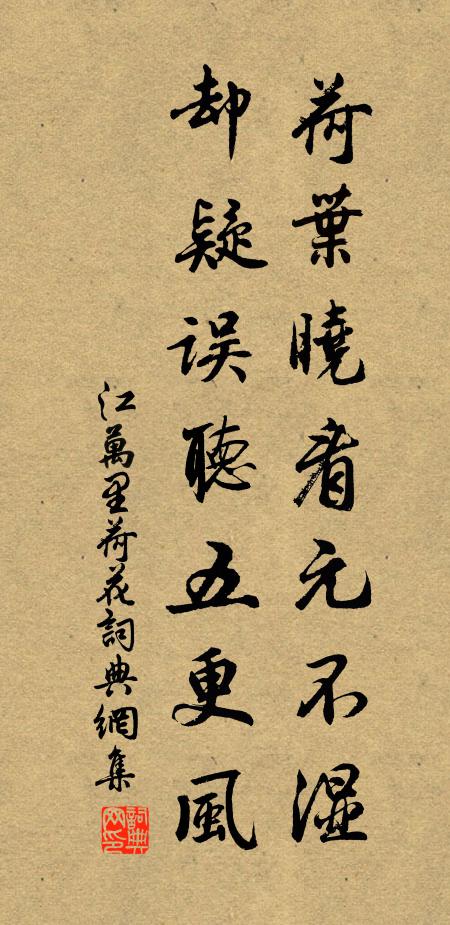 荷葉曉看元不濕
却疑误聽五更風
江萬里荷花詞典網集
詞典网印